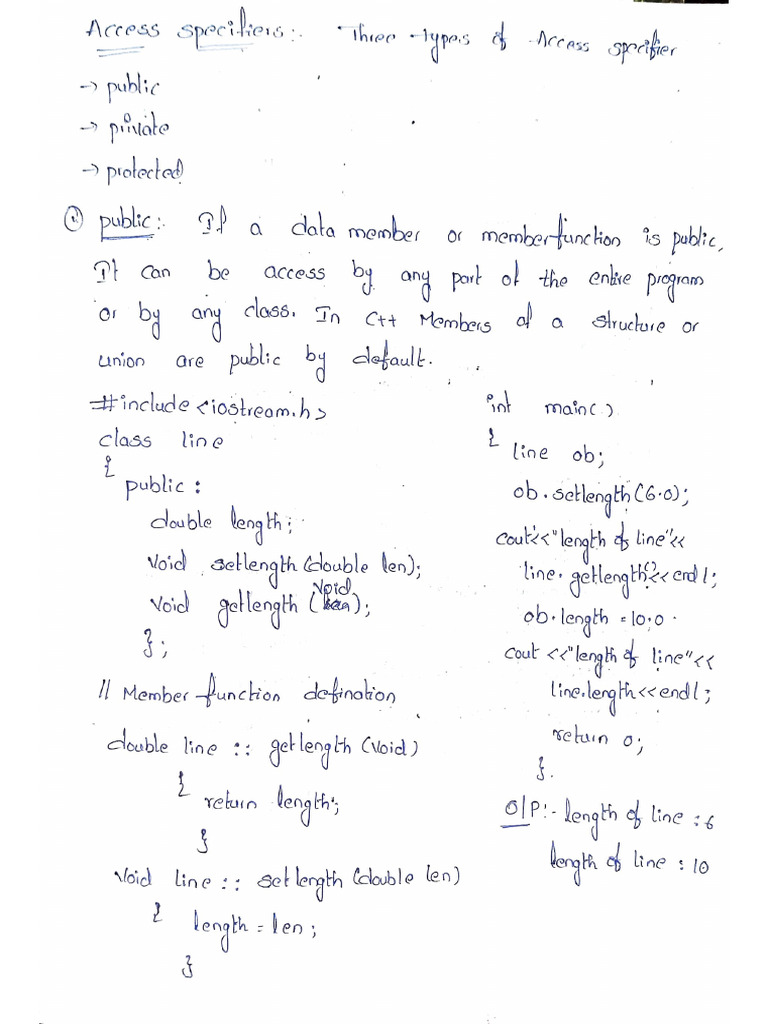 Access specifiers:. Three types of Access specifier
→ public
→ private
→ protected
① public:. If a data member or memberfunction is public,
It can be access by any part of the entire program
or by any class. In C++ Members of a structure or
union are public by default.
#include <iostream.h>
class line
{
public:
double length;
void setlength (double len);
void getlength (void);
};
// Member function defination
double line :: getlength (void)
{
return length;
}
void line :: setlength (double len)
{
length = len;
}
int main()
{
line ob;
ob.setlength(6.0);
cout<<"length of line"<<
line.getlength()<<endl;
ob.length = 10.0
cout <<"length of line"<<
line.length<<endl;
return 0;
}.
O/P:- length of line : 6
length of line : 10